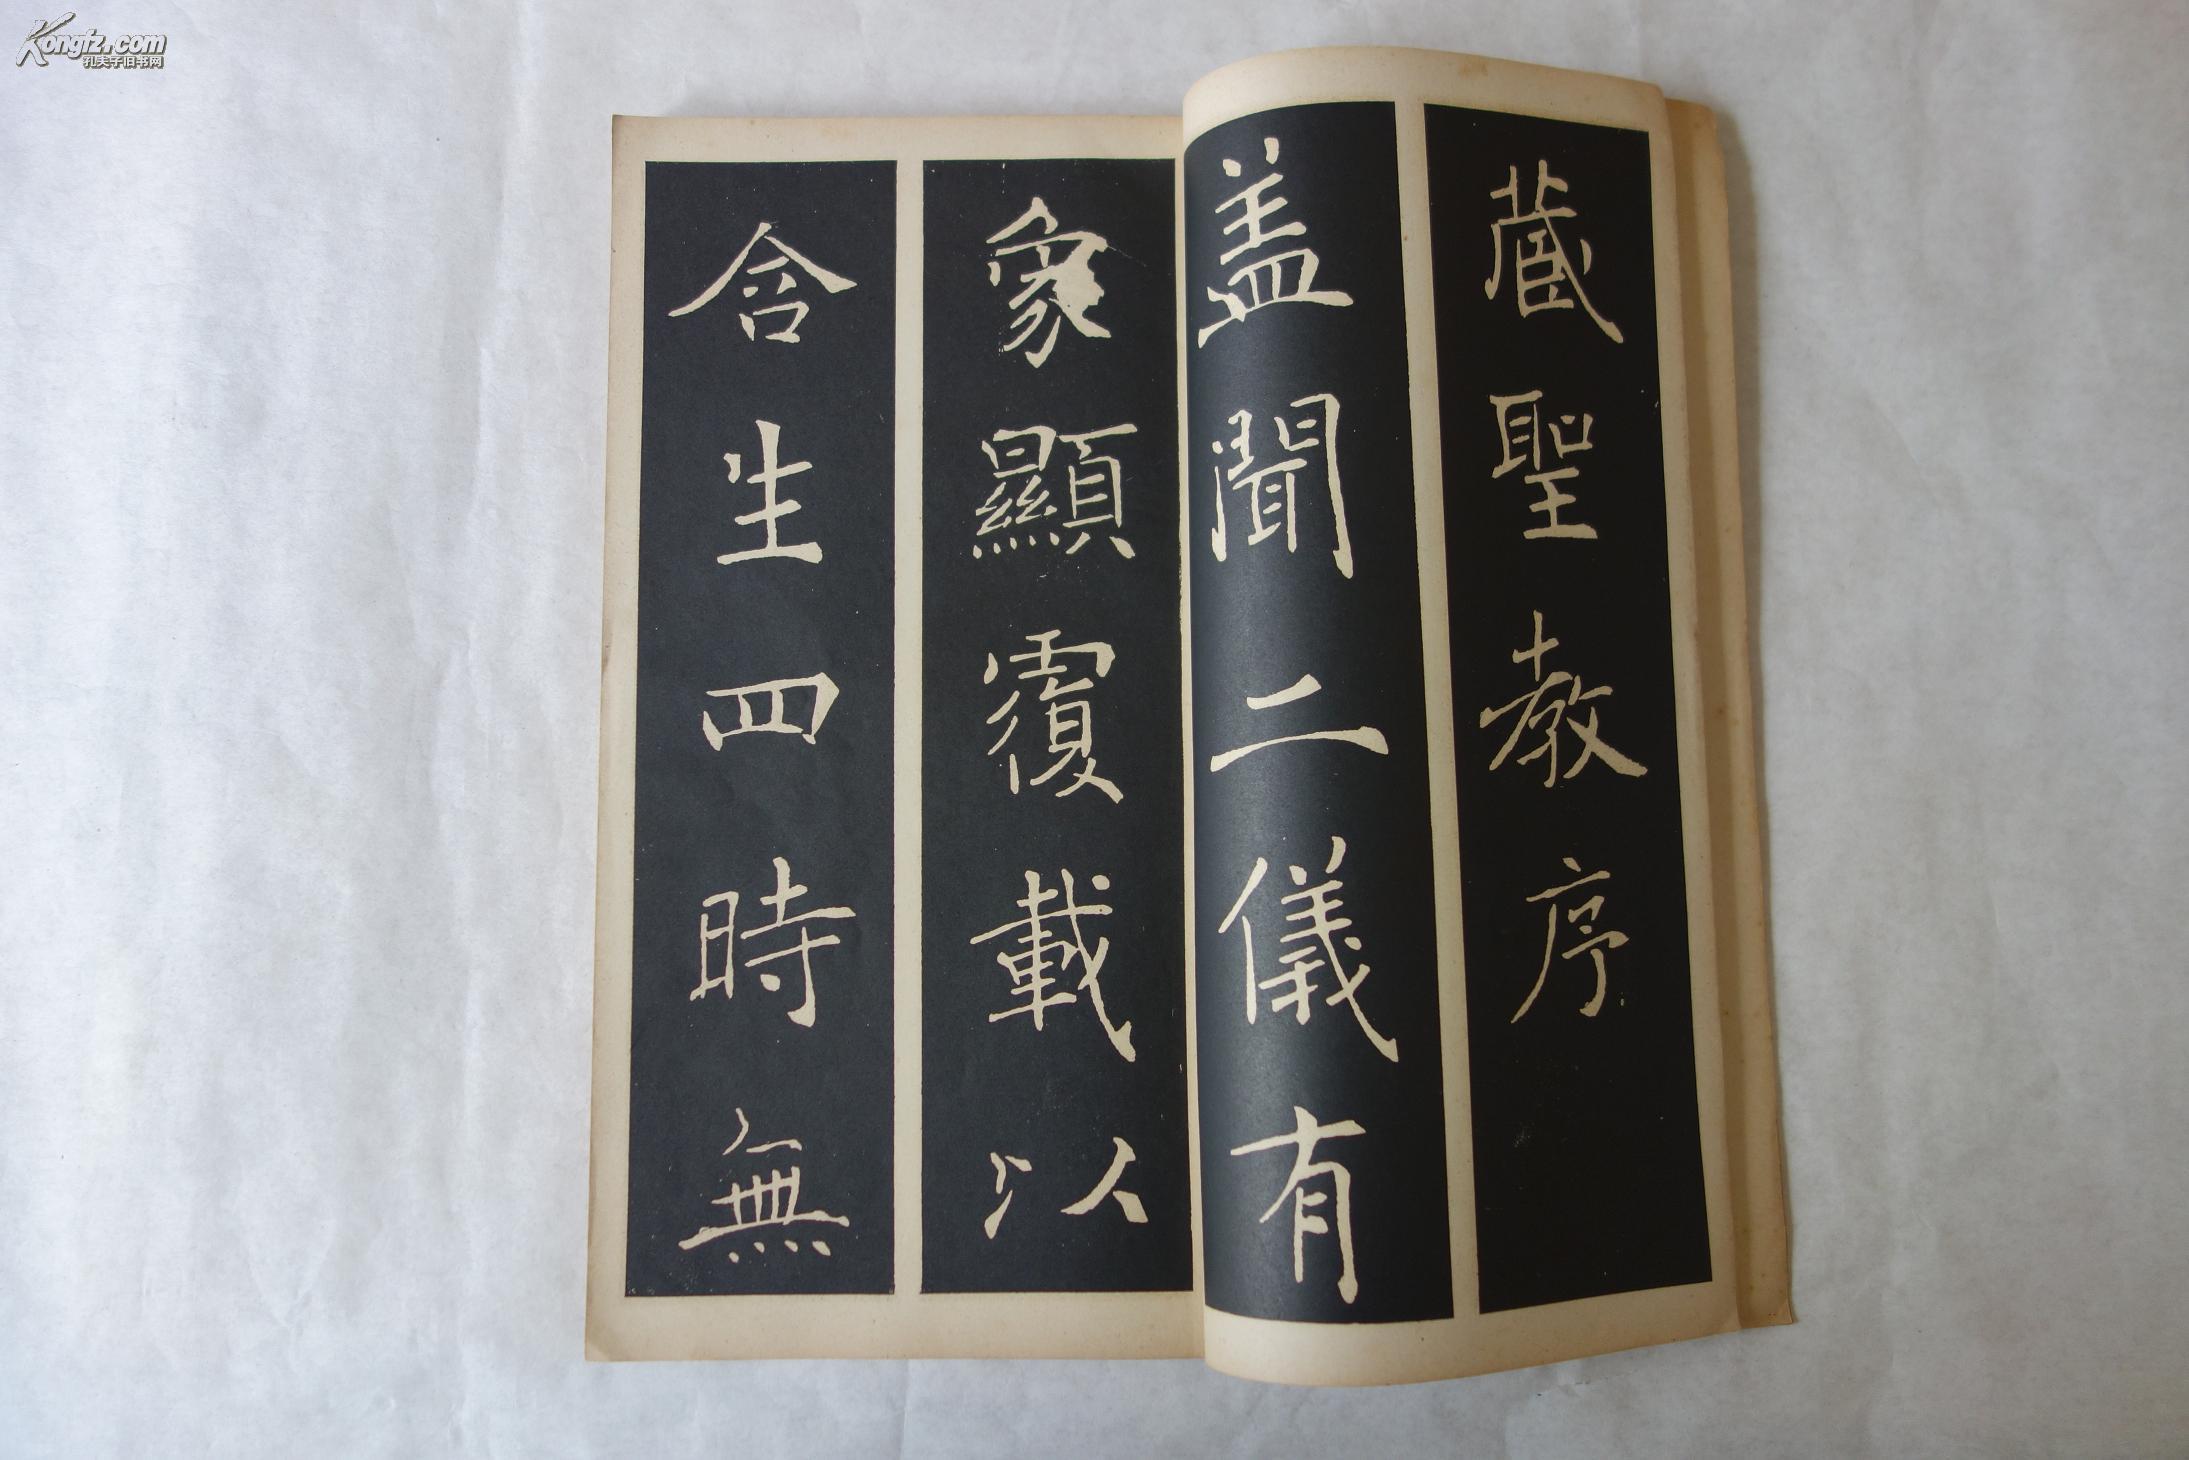 藏聖教序
蓋聞二儀有
象顯覆載以
含生四時無
Kongfz.com
孔夫子旧书网